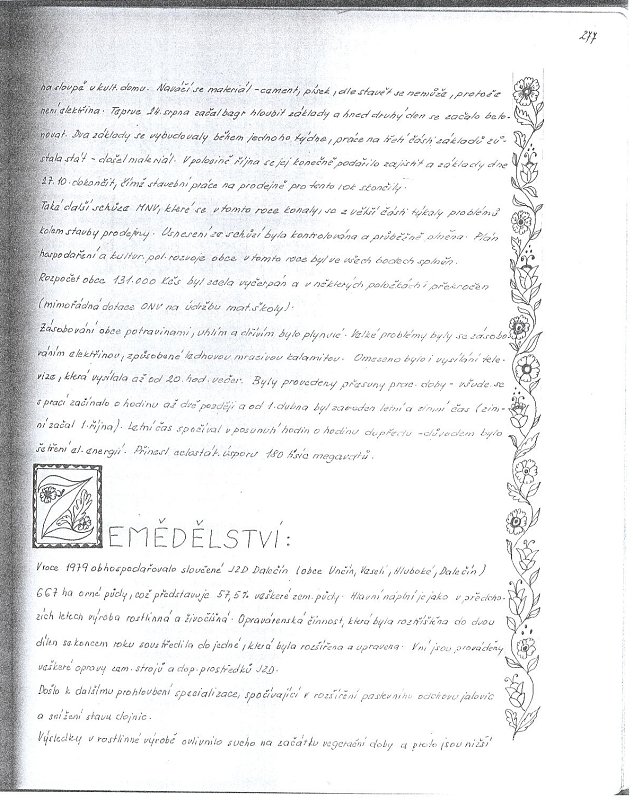 277
na sloupů u kult. domu. Naváží se materiál - cement, písek, ale stavět se nemůže, protože
není elektřina. Teprve 24. srpna začal bagr hloubit základy a hned druhý den se začalo beto-
novat. Dva základy se vybudovaly během jednoho týdne, práce na třetí části základů zů-
stala stát - došel materiál. V polovině října se jej konečně podařilo zajistit a základy dne
27.10. dokončit, čímž stavební práce na prodejně pro tento rok skončily.
Také další schůze MNV, které se v tomto roce konaly, se z větší části týkaly problémů
kolem stavby prodejny. Usnesení ze schůzí byla kontrolována a průběžně plněna. Plán
hospodaření a kultur. pol. rozvoje obce v tomto roce byl ve všech bodech splněn.
Rozpočet obce 131.000 Kčs byl zcela vyčerpán a v některých položkách i překročen
(mimořádná dotace ONV na údržbu mat. školy).
Zásobování obce potravinami, uhlím a dřívím bylo plynulé. Velké problémy byly se zásobo-
váním elektřinou, způsobené lednovou mrazivou kalamitou. Omezeno bylo i vysílání tele-
vize, která vysílala až od 20. hod. večer. Byly provedeny přesuny prac. doby - všude se
s prací začínalo o hodinu až dvě později a od 1. dubna byl zaveden letní a zimní čas (zim-
ní začal 1. října). Letní čas spočíval v posunutí hodin o hodinu dopředu - důvodem bylo
šetření el. energií. Přinesl celostát. úsporu 180 tisíc megavatů.
ZEMĚDĚLSTVÍ:
V roce 1979 obhospodařovalo sloučené JZD Dalečín (obce Unčín, Veselí, Hluboké, Dalečín)
667 ha orné půdy, což představuje 57,5% veškeré zem. půdy. Hlavní náplní je jako v předcho-
zích letech výroba rostlinná a živočišná. Opravárenská činnost, která byla roztříštěna do dvou
dílen se koncem roku soustředila do jedné, která byla rozšířena a upravena. V ní jsou prováděny
veškeré opravy zem. strojů a dop. prostředků JZD.
Došlo k dalšímu prohloubení specializace, spočívající v rozšíření pastevního odchovu jalovic
a snížení stavu dojnic.
Výsledky v rostlinné výrobě ovlivnilo sucho na začátku vegetační doby a proto jsou nižší